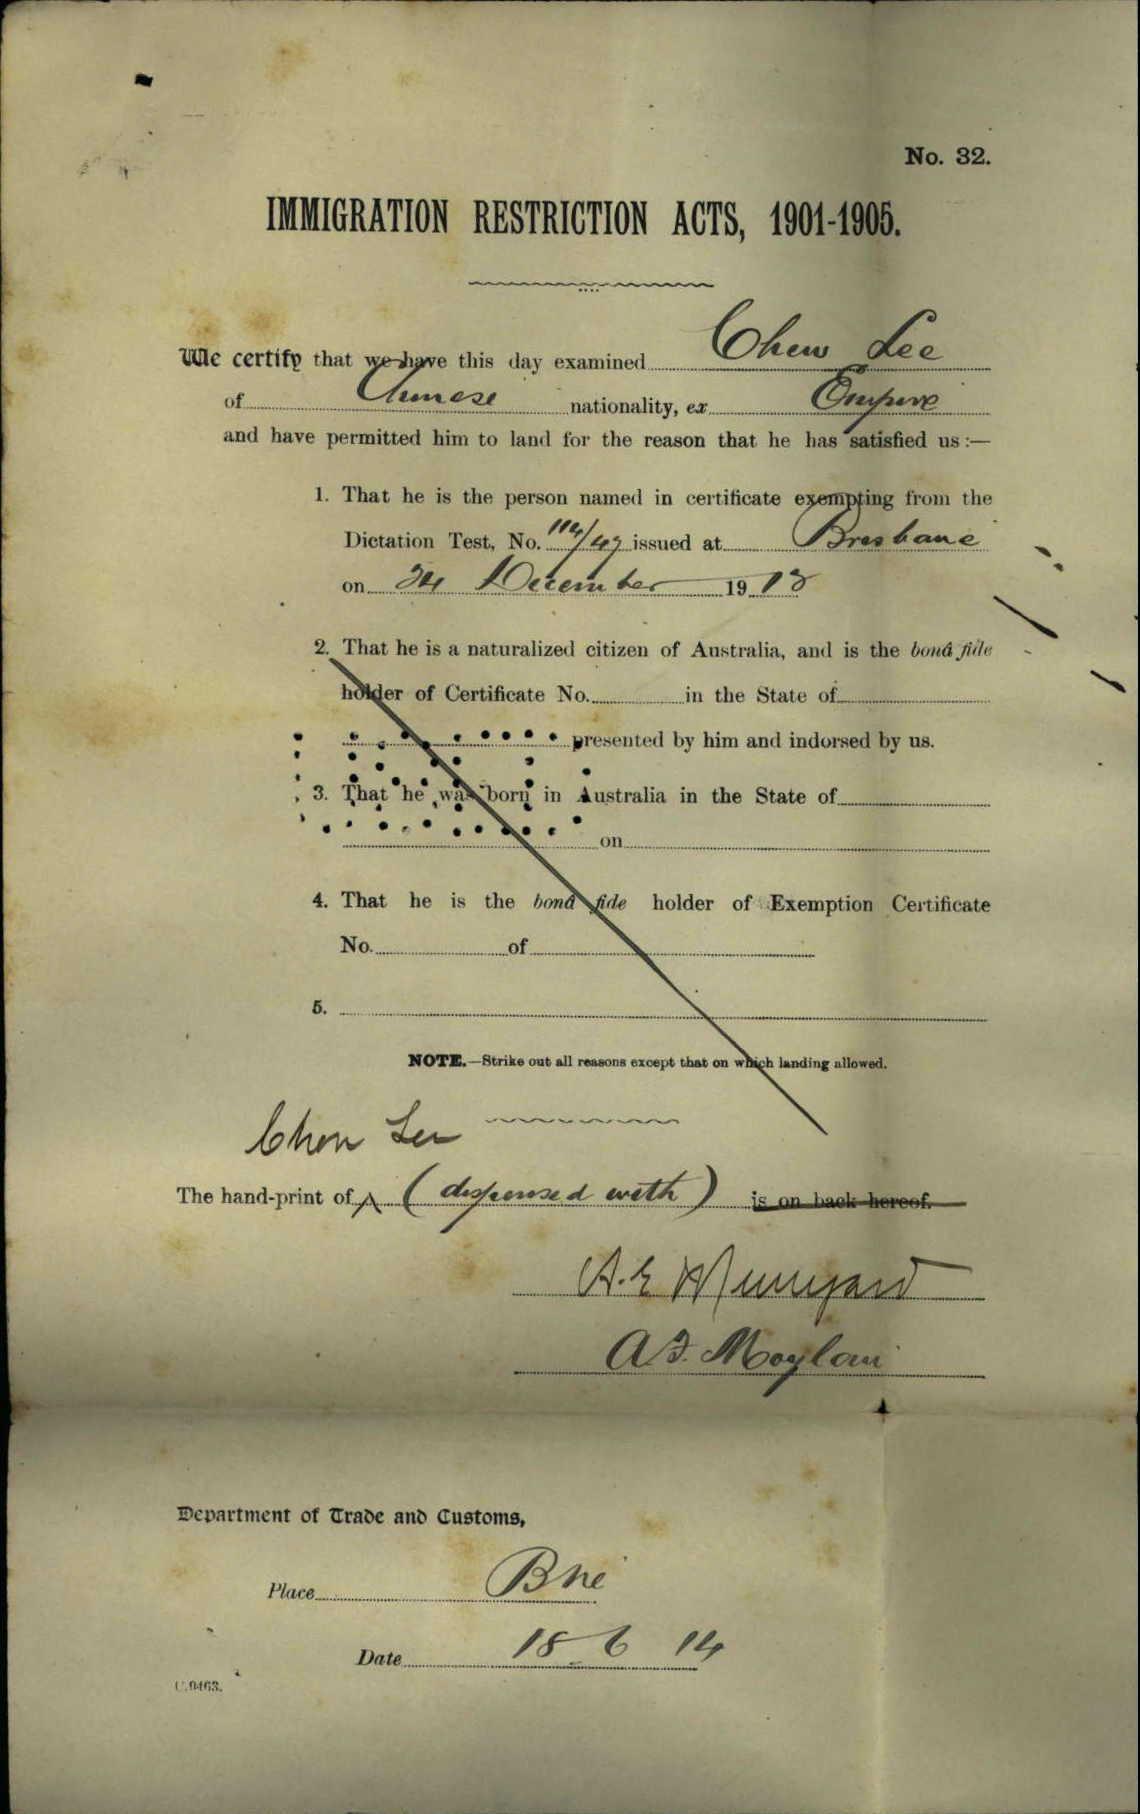 No. 32.
IMMIGRATION RESTRICTION ACTS, 1901-1905.
We certify that we have this day examined Chew Lee
of Chinese nationality, ex Empire
and have permitted him to land for the reason that he has satisfied us :—
1. That he is the person named in certificate exempting from the
Dictation Test, No. 114/47 issued at Brisbane
on 24 December 1913
2. That he is a naturalized citizen of Australia, and is the bonâ fide
holder of Certificate No. in the State of
presented by him and indorsed by us.
3. That he was born in Australia in the State of
on
4. That he is the bonâ fide holder of Exemption Certificate
No. of
5.
NOTE.—Strike out all reasons except that on which landing allowed.
Chew Lee
The hand-print of (dispensed with) is on back hereof.
A. E
A. F. Moylan
Department of Trade and Customs,
Place Bne
Date 18 6 14
C.9463.